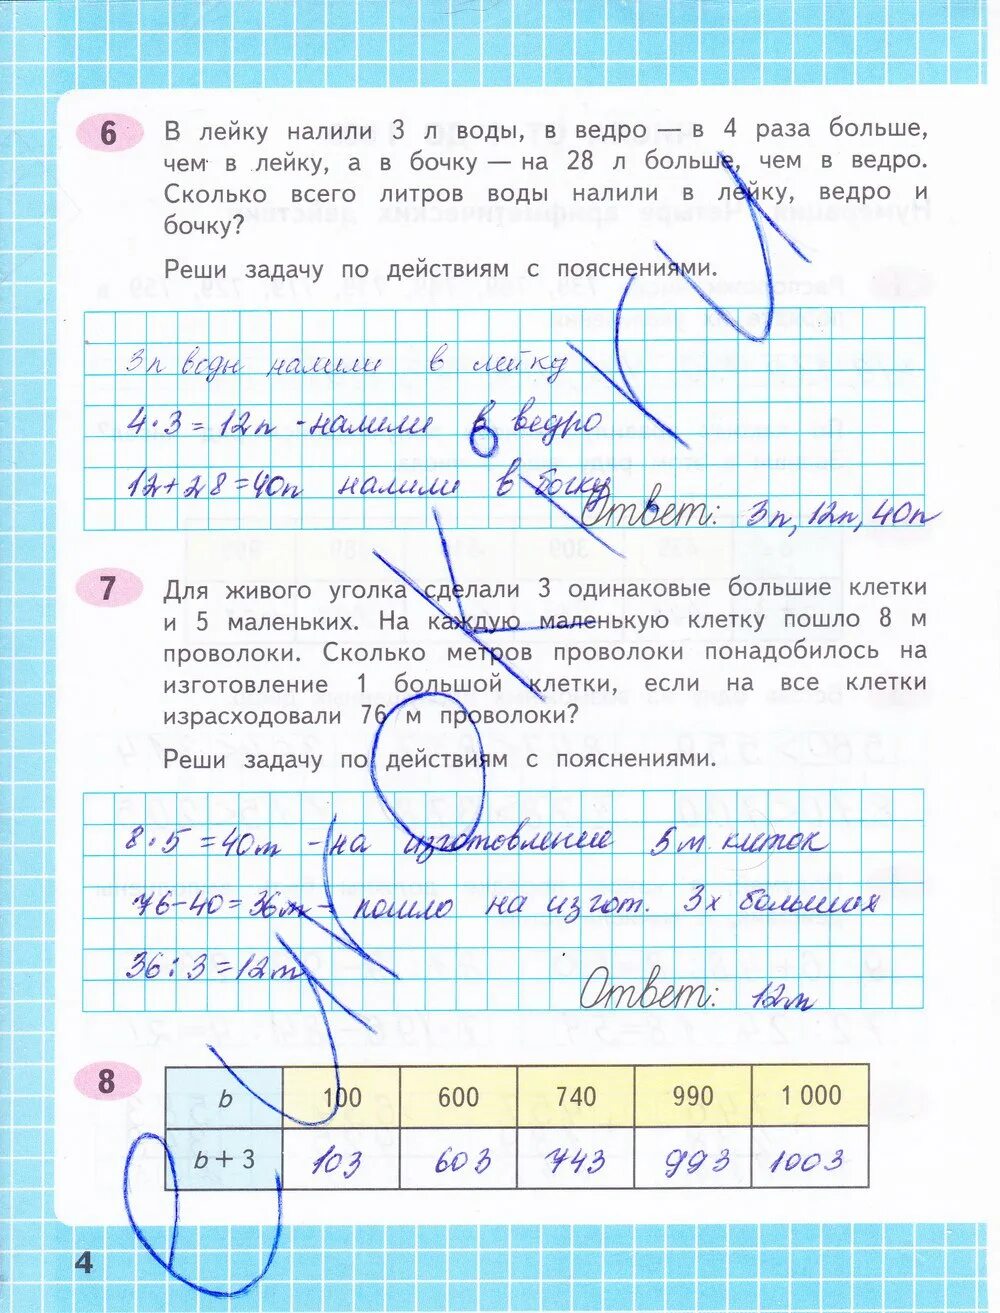 6
В лейку налили 3 л воды, в ведро — в 4 раза больше,
чем в лейку, а в бочку — на 28 л больше, чем в ведро.
Сколько всего литров воды налили в лейку, ведро и
бочку?
Реши задачу по действиям с пояснениями.
3л воды налили в лейку
4·3=12л -налили в ведро
12+28=40л налили в бочку
Ответ: 3л, 12л, 40л
7
Для живого уголка сделали 3 одинаковые большие клетки
и 5 маленьких. На каждую маленькую клетку пошло 8 м
проволоки. Сколько метров проволоки понадобилось на
изготовление 1 большой клетки, если на все клетки
израсходовали 76 м проволоки?
Реши задачу по действиям с пояснениями.
8·5=40м -на изготовление 5 м. клеток
76-40=36м- пошло на изгот. 3х больших
36:3=12м
Ответ: 12м
8
b 100 600 740 990 1 000
b + 3 103 603 743 993 1003
4